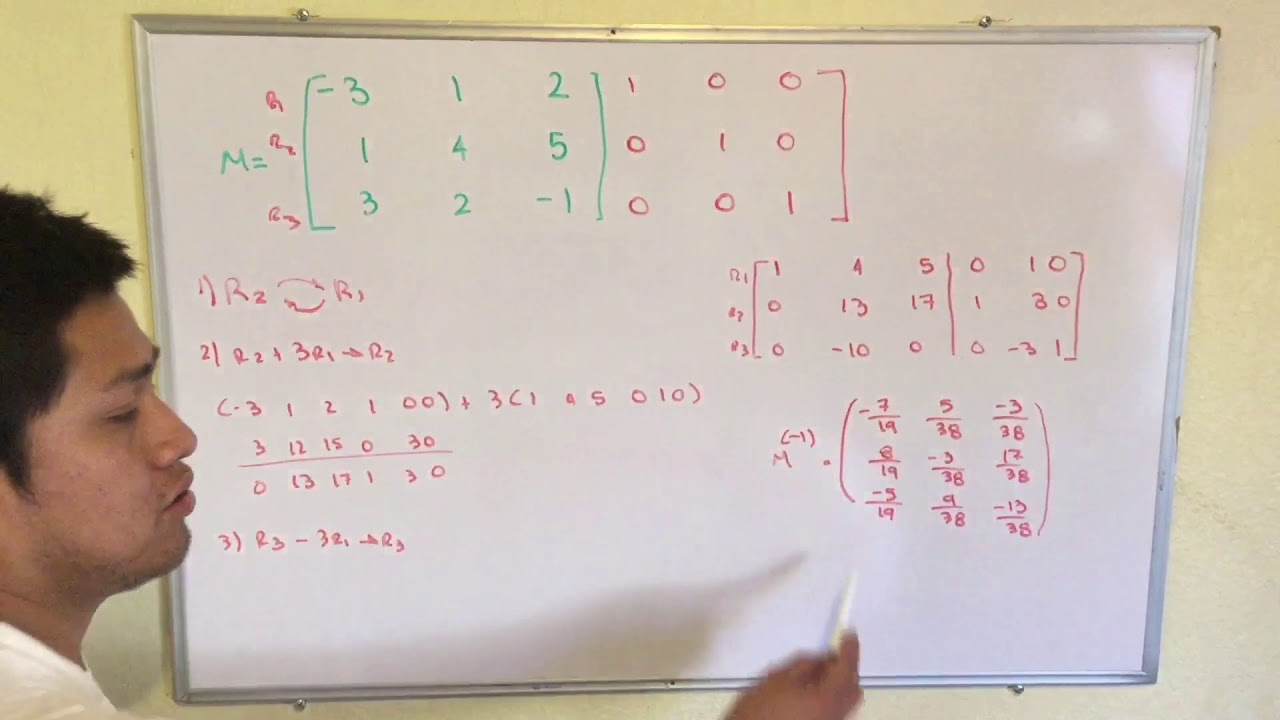 R1 -3 1 2 1 0 0
M= R2 1 4 5 0 1 0
R3 3 2 -1 0 0 1
1) R2 R1
2) R2 + 3R1 → R2
(-3 1 2 1 0 0) + 3(1 4 5 0 1 0)
3 12 15 0 3 0
0 13 17 1 3 0
3) R3 - 3R1 → R3
R1 1 4 5 0 1 0
R2 0 13 17 1 3 0
R3 0 -10 0 0 -3 1
M(-1) = -7/19 5/38 -3/38
8/19 -3/38 17/38
-5/19 9/38 -13/38